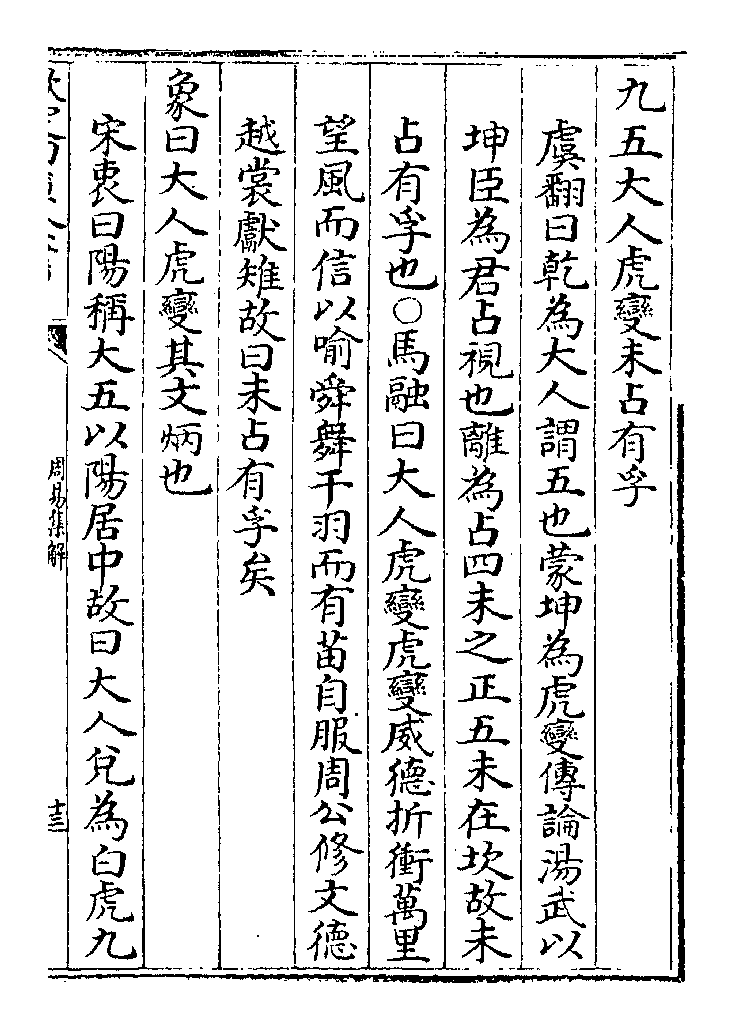 九五大人虎變未占有孚
虞翻曰乾為大人謂五也蒙坤為虎變傳論湯武以
坤臣為君占視也離為占四未之正五未在坎故未
占有孚也○馬融曰大人虎變虎變威德折衝萬里
望風而信以喻舜舞干羽而有苗自服周公修文德
越裳獻雉故曰未占有孚矣
象曰大人虎變其文炳也
宋衷曰陽稱大五以陽居中故曰大人兌為白虎九
周易集解
十三